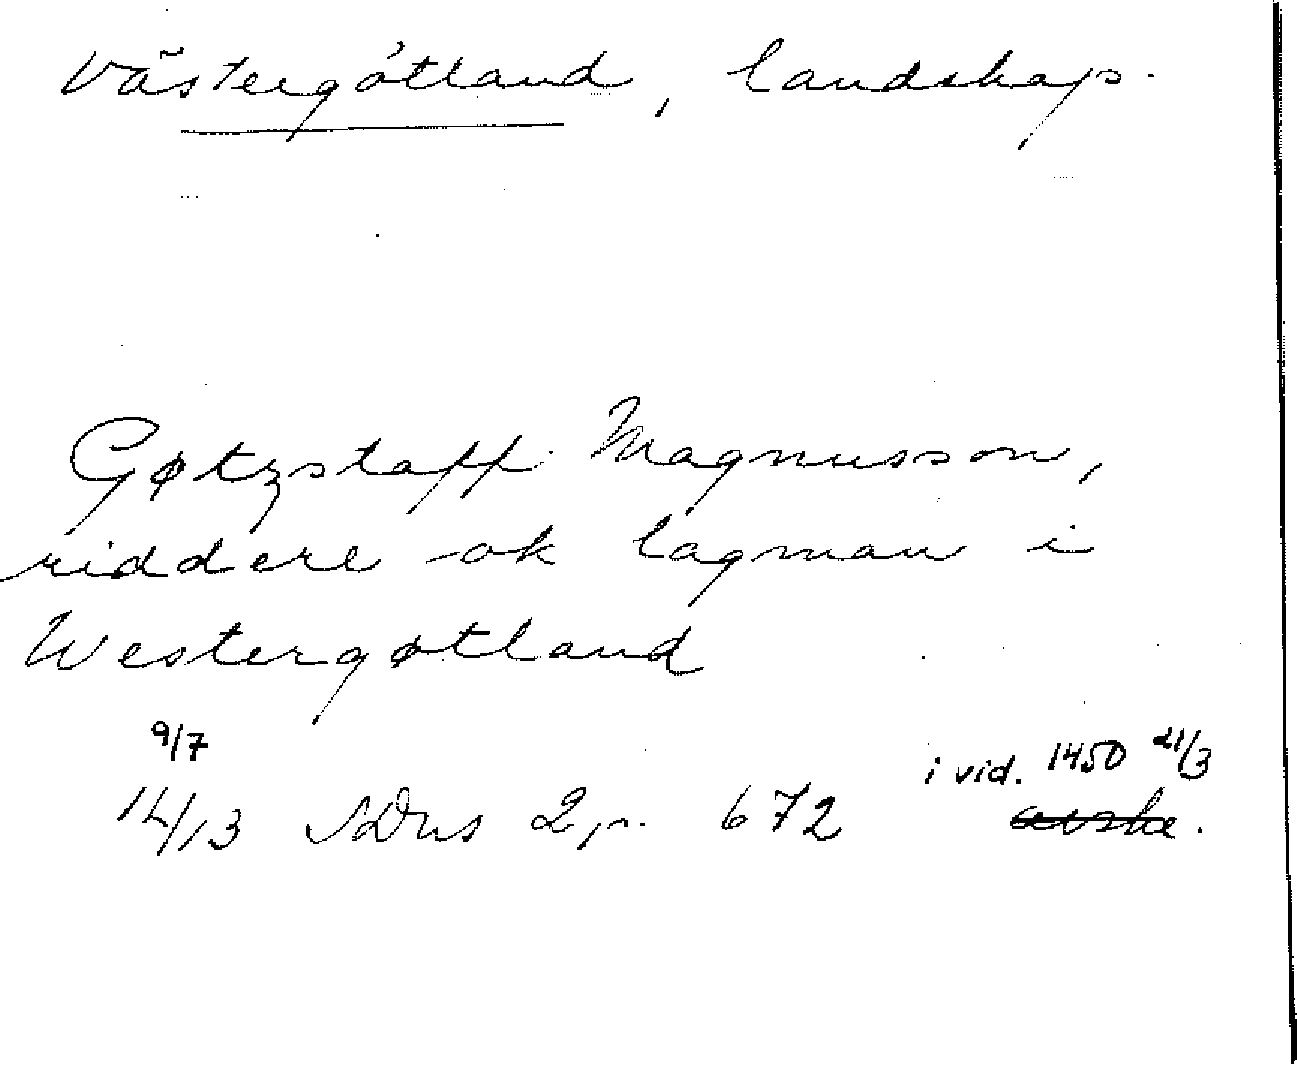 Västergötland, landskap.
Gøtzstaff Magnusson,
riddere ok lagman i
Westergøtland
9/7
14/13 SDns 2, p. 672
i vid. 1450 21/3
avskr.